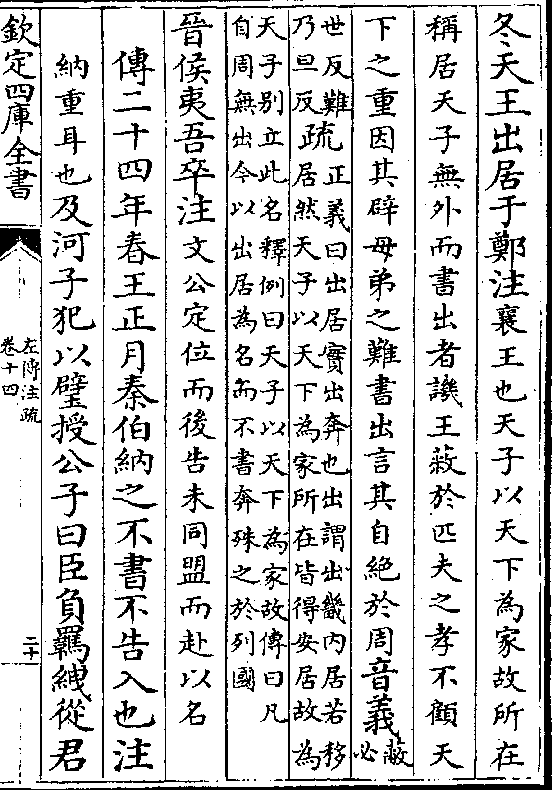 冬天王出居于鄭注襄王也天子以天下為家故所在
稱居天子無外而書出者譏王蔽於匹夫之孝不顧天
下之重因其辟母弟之難書出言其自絕於周音義蔽必
世反難
乃旦反
疏
正義曰出居實出奔也出謂出畿內居若移
居然天子以天下為家所在皆得安居故為
天子別立此名釋例曰天子以天下為家故傳曰凡
自周無出今以出居為名而不書奔殊之於列國
晉侯夷吾卒注文公定位而後告未同盟而赴以名
傳二十四年春王正月秦伯納之不書不告入也注
納重耳也及河子犯以璧授公子曰臣負羈絏從君
欽定四庫全書
左傳注疏
卷十四
二十